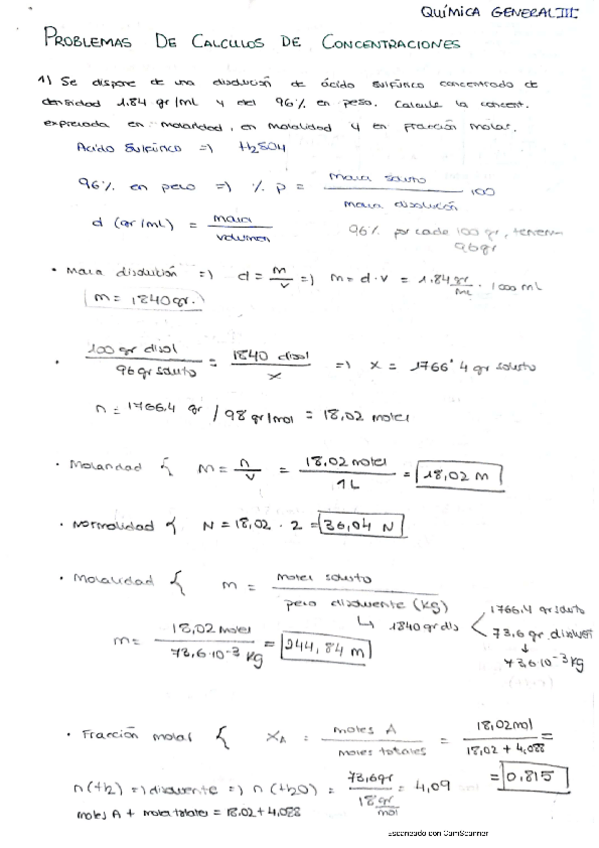 QUÍMICA GENERAL III
PROBLEMAS DE CALCULOS DE CONCENTRACIONES
1) Se dispone de una disolución de ácido sulfúrico concentrado de
densidad 1.84 gr/ml y del 96% en peso. Calcula la concent.
expresada en molaridad, en molalidad y en fracción molar.
Acido Sulfúrico => H2SO4
96% en peso => % p = masa soluto / masa disolución · 100
d (gr/ml) = masa / volumen
96% por cada 100 gr, tenemos
96gr
• Masa disolución => d = m/v => m = d · v = 1.84 gr/mL · 1000 mL
m = 1840gr.
• 100 gr disol / 96 gr soluto = 1840 disol / x => x = 1766'4 gr soluto
n = 1766.4 gr / 98 gr/mol = 18,02 moles
• Molaridad { M = n/v = 18,02 moles / 1L = 18,02 M
• Normalidad { N = 18,02 · 2 = 36,04 N
• Molalidad { m = moles soluto / peso disolvente (kg)
↳ 1840 gr dis < 1766.4 gr soluto
73,6 gr disolven
↓
73,6·10-3 kg
m = 18,02 moles / 73,6·10-3 kg = 244,84 m
• Fracción molar { XA = moles A / moles totales = 18,02mol / 18,02 + 4,088 =
= 0.815
n(H2) => disolvente => n(H2O) = 73,6gr / 18 gr/mol = 4,09
moles A + moles totales = 18.02 + 4,088
Escaneado con CamScanner